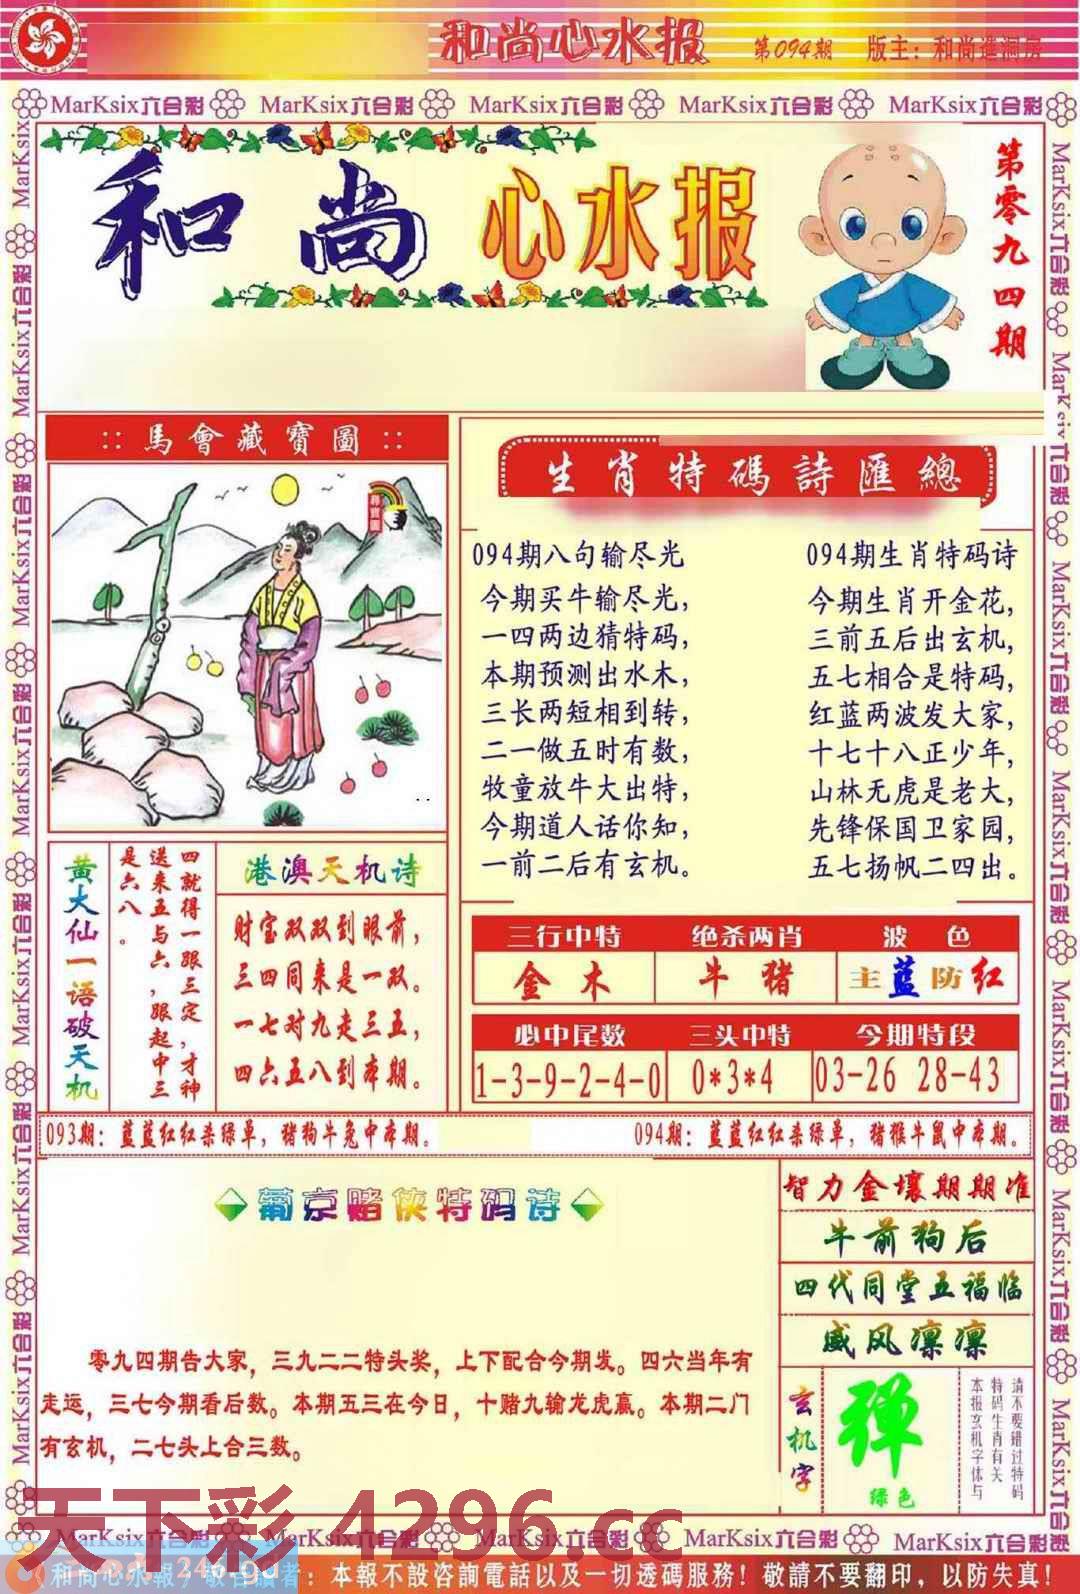 和尚心水报 第094期 版主：和尚進洞房
MarKsix六合彩 MarKsix六合彩 MarKsix六合彩 MarKsix六合彩 MarKsix六合彩
和尚 心水报
第零九四期
:: 馬會藏寶圖 ::
尋寶圖
生肖特碼詩匯總
094期八句输尽光
今期买牛输尽光，
一四两边猜特码，
本期预测出水木，
三长两短相到转，
二一做五时有数，
牧童放牛大出特，
今期道人话你知，
一前二后有玄机。
094期生肖特码诗
今期生肖开金花，
三前五后出玄机，
五七相合是特码，
红蓝两波发大家，
十七十八正少年，
山林无虎是老大，
先锋保国卫家园，
五七扬帆二四出。
黄大仙一语破天机
四就得一跟三定，才神
送来五与六，跟起中三
是六八。
港澳天机诗
财宝双双到眼前，
三四同来是一双。
一七对九走三五，
四六五八到本期。
三行中特 绝杀两肖 波色
金木 牛猪 主蓝防红
必中尾数 三头中特 今期特段
1-3-9-2-4-0 0*3*4 03-26 28-43
093期：蓝蓝红红杀绿单，猪狗牛兔中本期。
094期：蓝蓝红红杀绿单，猪猴牛鼠中本期。
葡京赌侠特码诗
零九四期告大家，三九二二特头奖，上下配合今期发。四六当年有
走运，三七今期看后数。本期五三在今日，十赌九输龙虎赢。本期二门
有玄机，二七头上合三数。
智力金壤期期准
牛前狗后
四代同堂五福临
威风凛凛
玄机字
弹
绿色
请不要错过特码
特码生肖有关
本报玄机字体与
天下彩 4296.cc
MarKsix六合彩 MarKsix六合彩 MarKsix六合彩 MarKsix六合彩 MarKsix六合彩
和尚心水報：敬告讀者：本報不設咨詢電話以及一切透碼服務！敬請不要翻印，以防失真！